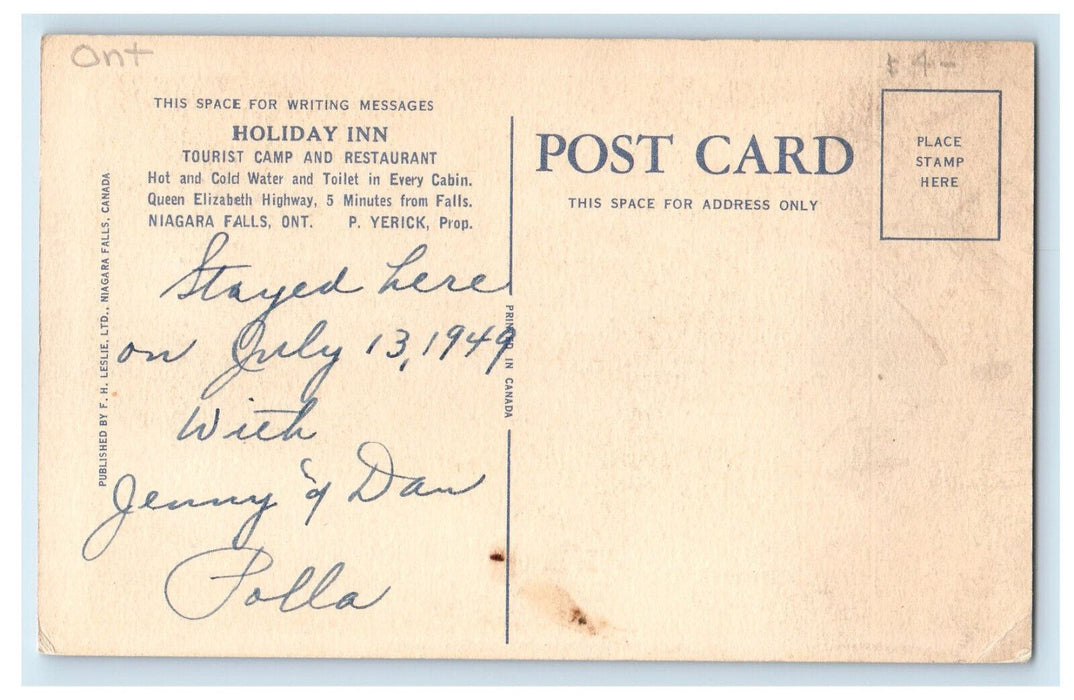 Ont
$4-
THIS SPACE FOR WRITING MESSAGES
HOLIDAY INN
TOURIST CAMP AND RESTAURANT
Hot and Cold Water and Toilet in Every Cabin.
Queen Elizabeth Highway, 5 Minutes from Falls.
NIAGARA FALLS, ONT. P. YERICK, Prop.
Stayed here
on July 13, 1949
With
Jenny & Dan
Polla
PUBLISHED BY F. H. LESLIE, LTD., NIAGARA FALLS, CANADA
PRINTED IN CANADA
POST CARD
THIS SPACE FOR ADDRESS ONLY
PLACE
STAMP
HERE